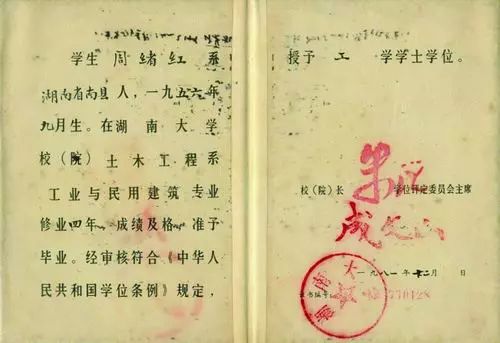 学生 周绪红 系
湖南省南县人，一九五六年
九月生。在湖南大学
校（院）土木工程系
工业与民用建筑专业
修业四年、成绩及格、准予
毕业。经审核符合《中华人
民共和国学位条例》规定，
授予 工 学学士学位。
校（院）长 学位评定委员会主席
一九八一年十二月 日
证书编号